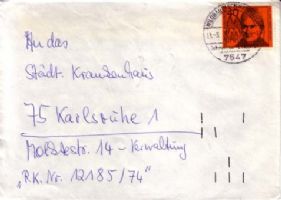 An das
Städt. Krankenhaus
75 Karlsruhe 1
Moltkestr. 14 - Verwaltung
"R.K. Nr. 12185/74"
7547